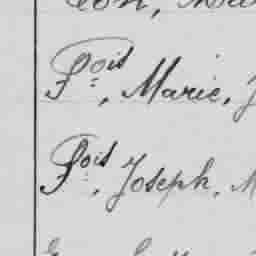 Fois, Marie, J
Fois, Joseph, M